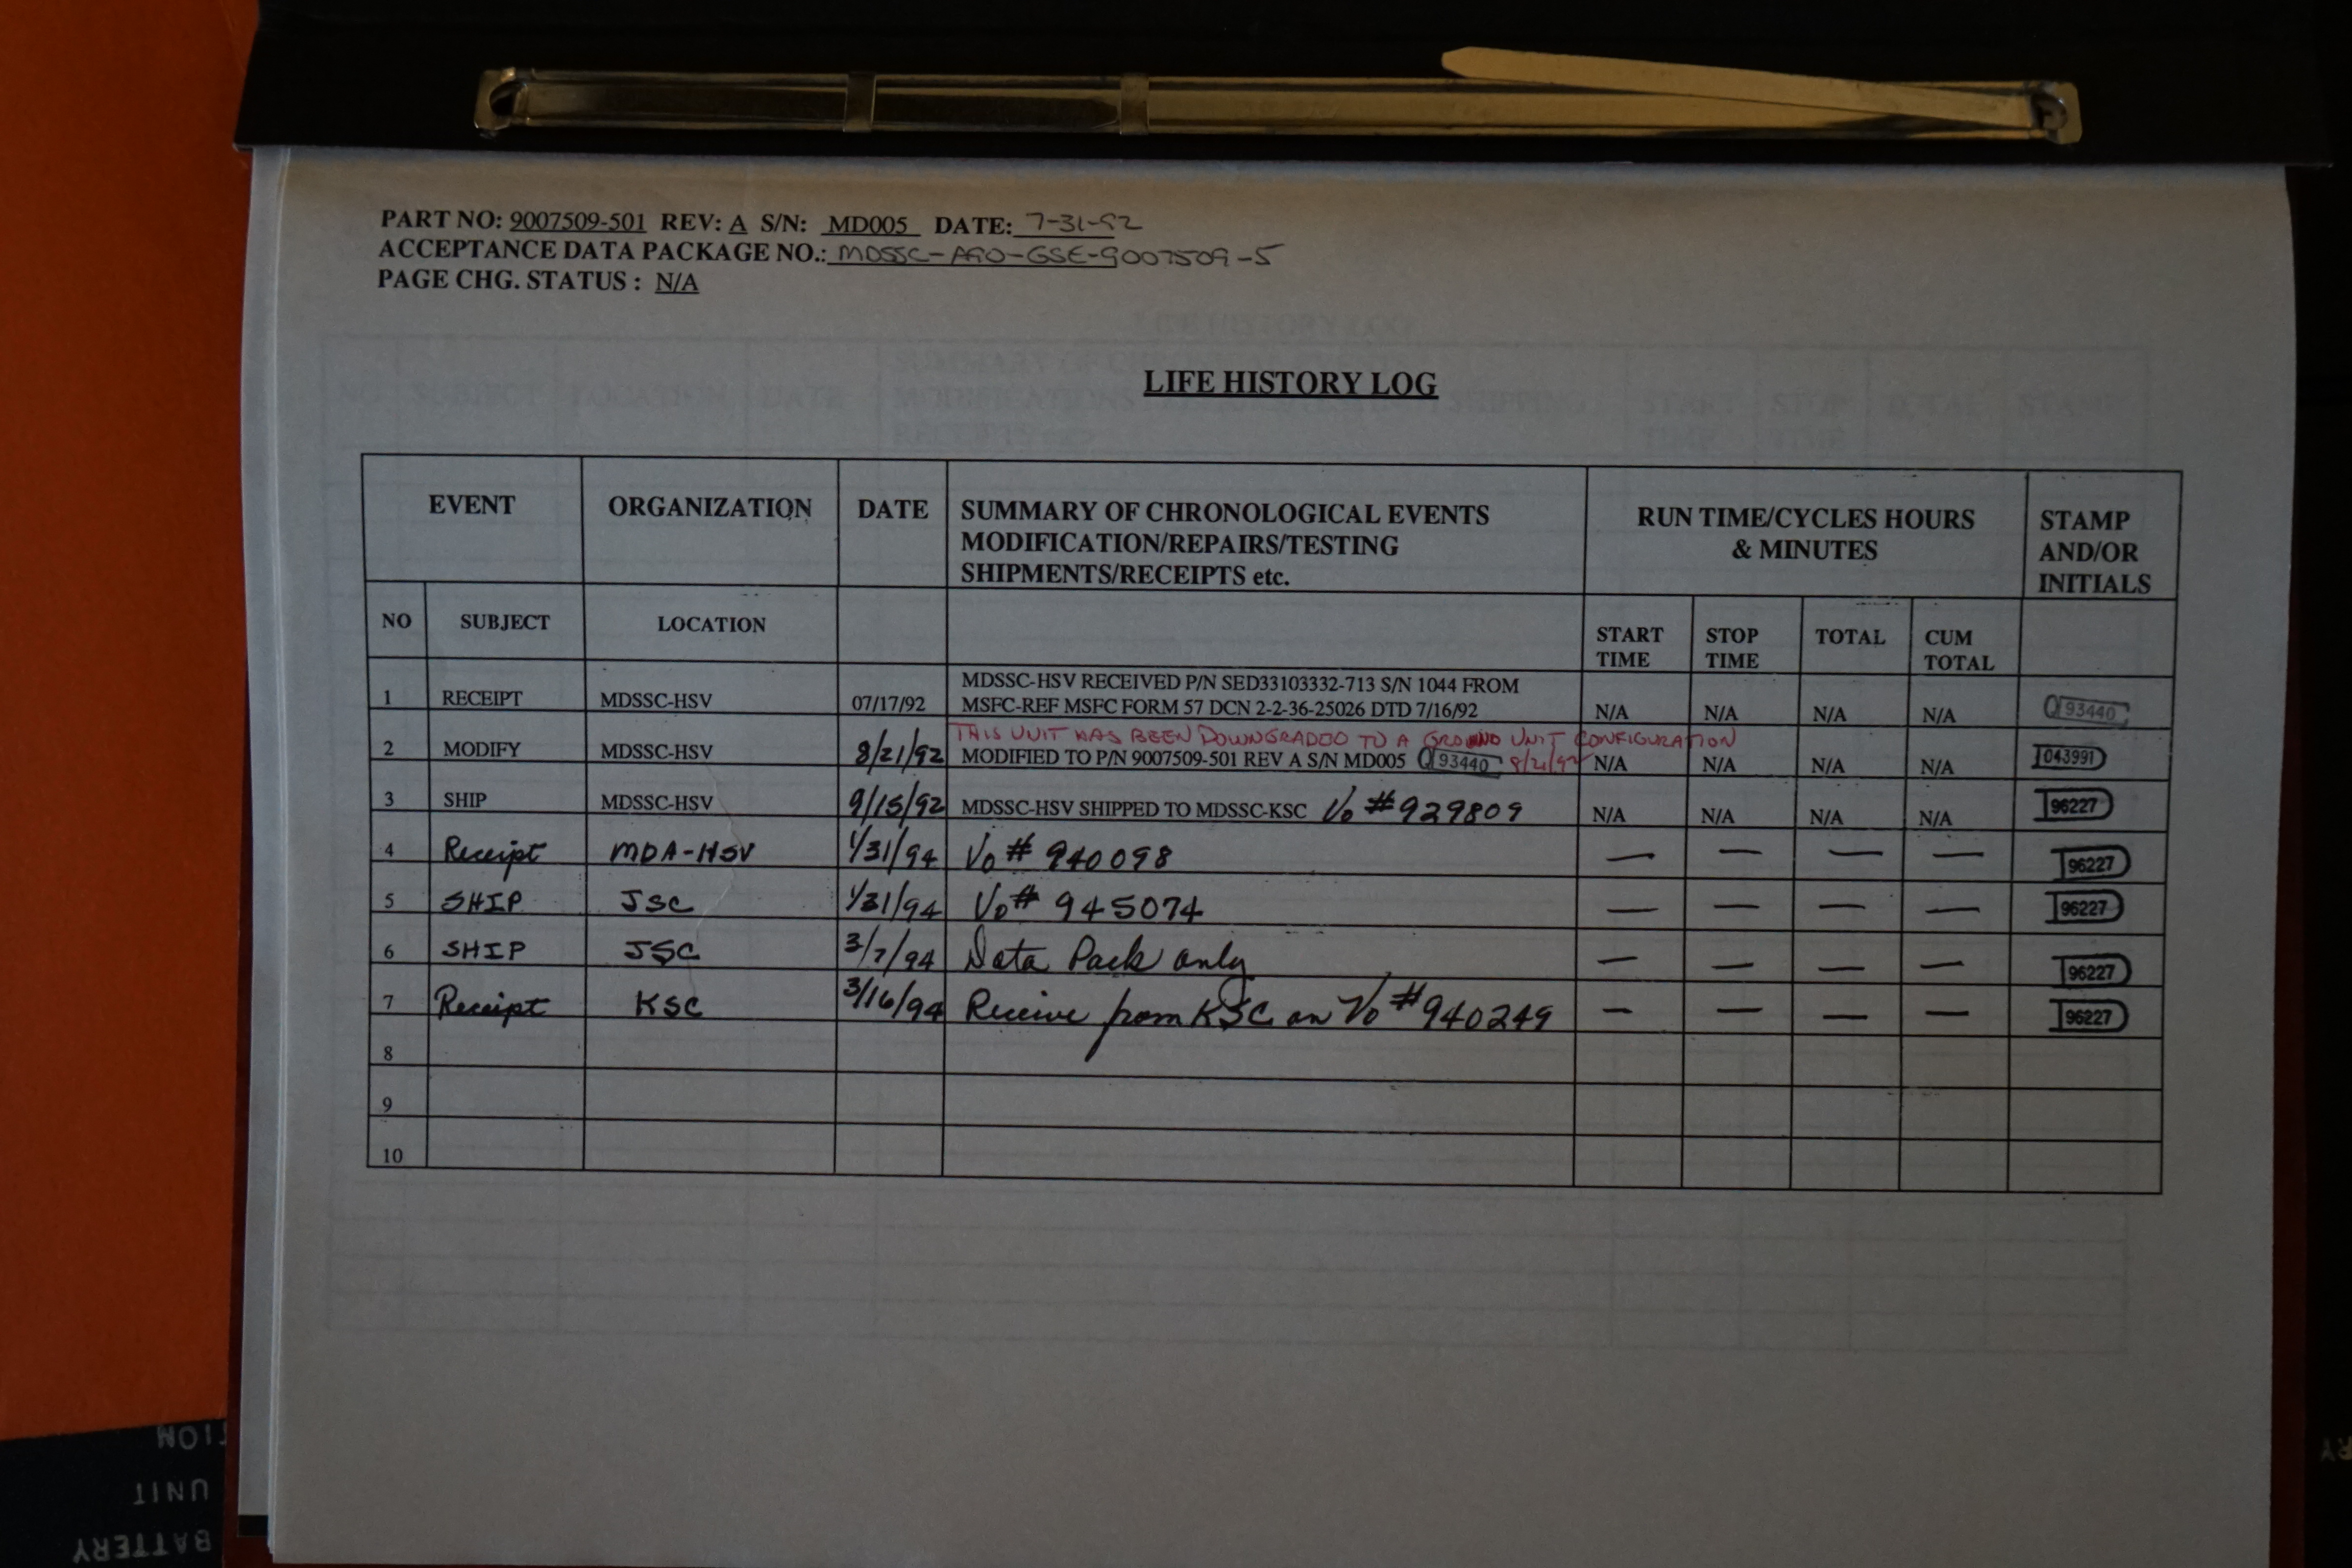 PART NO: 9007509-501 REV: A S/N: MD005 DATE: 7-31-92
ACCEPTANCE DATA PACKAGE NO.: MDSSC-A90-GSE-9007509-5
PAGE CHG. STATUS : N/A
LIFE HISTORY LOG
EVENT ORGANIZATION DATE SUMMARY OF CHRONOLOGICAL EVENTS MODIFICATION/REPAIRS/TESTING SHIPMENTS/RECEIPTS etc. RUN TIME/CYCLES HOURS & MINUTES STAMP AND/OR INITIALS
NO SUBJECT LOCATION START TIME STOP TIME TOTAL CUM TOTAL
1 RECEIPT MDSSC-HSV 07/17/92 MDSSC-HSV RECEIVED P/N SED33103332-713 S/N 1044 FROM MSFC-REF MSFC FORM 57 DCN 2-2-36-25026 DTD 7/16/92 N/A N/A N/A N/A 93440
THIS UNIT HAS BEEN DOWNGRADED TO A GROUND UNIT CONFIGURATION
2 MODIFY MDSSC-HSV 8/21/92 MODIFIED TO P/N 9007509-501 REV A S/N MD005 93440 8/21/92 N/A N/A N/A N/A 043991
3 SHIP MDSSC-HSV 9/15/92 MDSSC-HSV SHIPPED TO MDSSC-KSC Vo #929809 N/A N/A N/A N/A 96227
4 Receipt MDA-HSV 1/31/94 Vo # 940098 — — — — 96227
5 SHIP JSC 1/31/94 Vo # 945074 — — — — 96227
6 SHIP JSC 3/7/94 Data Pack only — — — — 96227
7 Receipt KSC 3/16/94 Receive from KSC on Vo #940249 — — — — 96227
8
9
10
UNIT
BATTERY